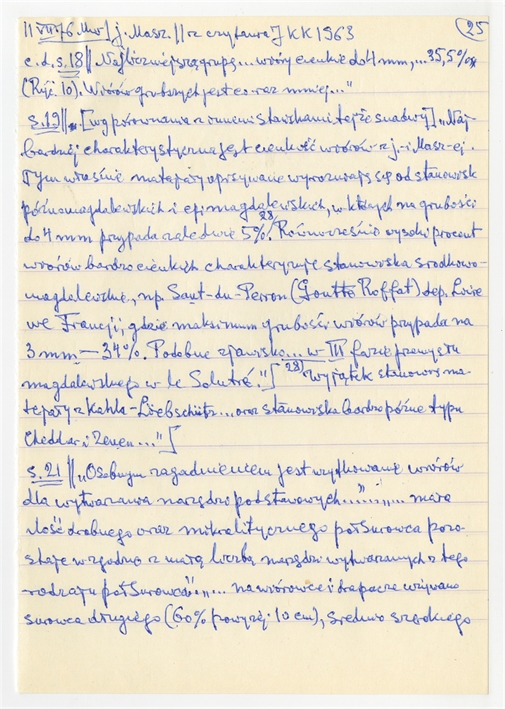 || VII 76. Mw] j. Masz. || z czytania J KK 1963 25
c.d. s. 18 || „Najliczniejszą grupę... wióry cienkie do 4 mm,... 35,5%
(Ryć. 10). Wiórów grubszych jest co raz mniej..."
s. 19 || „ [wg porównania z innemi stawkami tejże snadwij] „Naj-
bardziej charakterystyczną jest cienkość wiórów z j.-i Masz-ej.
Tym właśnie matapery opisywane wyróżniają się od stanowisk
późnomagdaleńskich i epimagdaleńskich, w których na grubości
do 4 mm przypada zaledwie 5%.28 Równocześnie wysoki procent
wiórów bardzo cienkich charakteryzuje stanowiska środkowo-
magdaleńskie, np. Saut-du-Perron (Goutte Roffat) dep. Loire
we Francji, gdzie maksimum grubości wiórów przypada na
3 mm — 34%. Podobne zjawisko... w III fazie przemysłu
magdaleńskiego w le Solutré." 28) Wyjątek stanowią ma-
teriały z Kahla-Löbschütz... oraz stanowiska bardzo późne typu
Cheddar i Zeven..."
s. 21 || „Osobnym zagadnieniem jest użytkowanie wiórów
dla wytwarzania narzędzi podstawowych..." ... „... mała
ilość drobnego oraz mikrolitycznego półsurowca pozo-
staje w zgodzie z małą liczbą narzędzi wytwarzanych z tego
rodzaju półsurowca" „... na wiórowce i drapacze używano
surowca długiego (60% powyżej 10 cm), średnio szerokiego